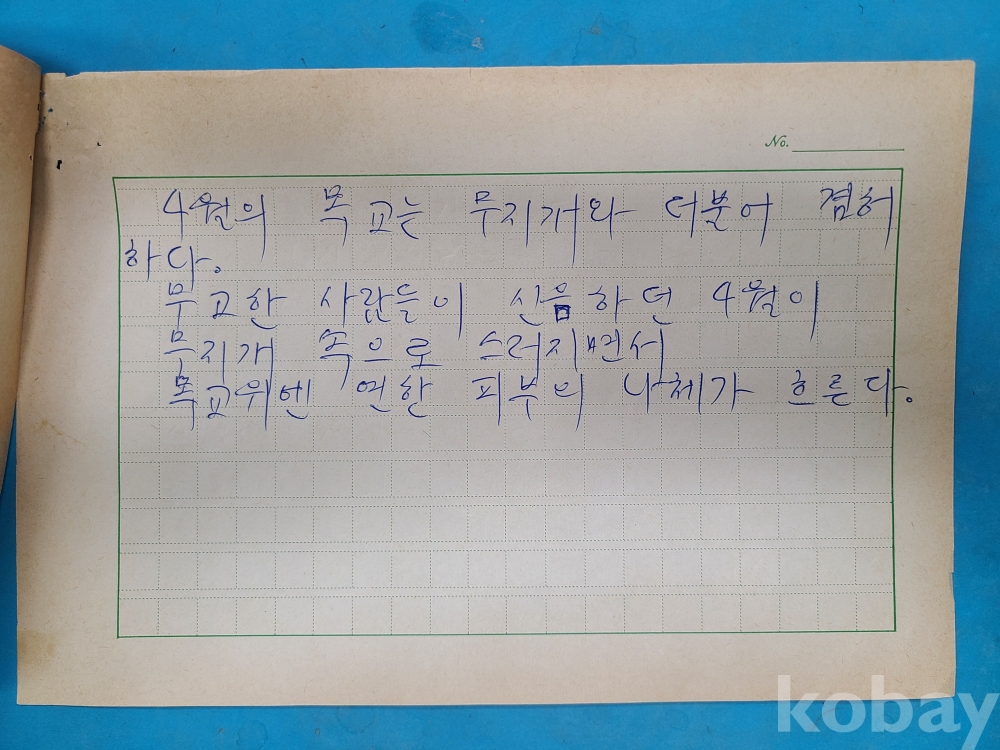 No.
4월의 목교는 무지개와 더불어 겸허
하다.
무고한 사람들이 신음하던 4월이
무지개 속으로 스러지면서
목교위엔 연한 피부의 나체가 흐른다.
kobay